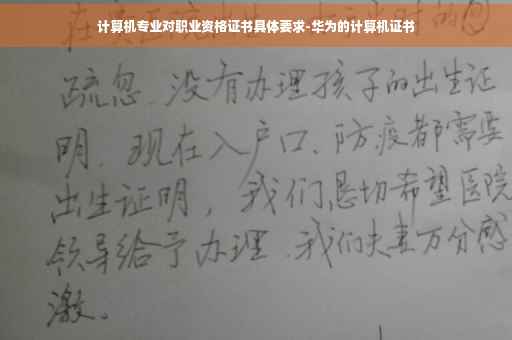 计算机专业对职业资格证书具体要求-华为的计算机证书
疏忽、没有办理孩子的出生证
明、现在入户口、防疫都需要
出生证明，我们恳切希望医院
领导给予办理、我们夫妻万分感
激。